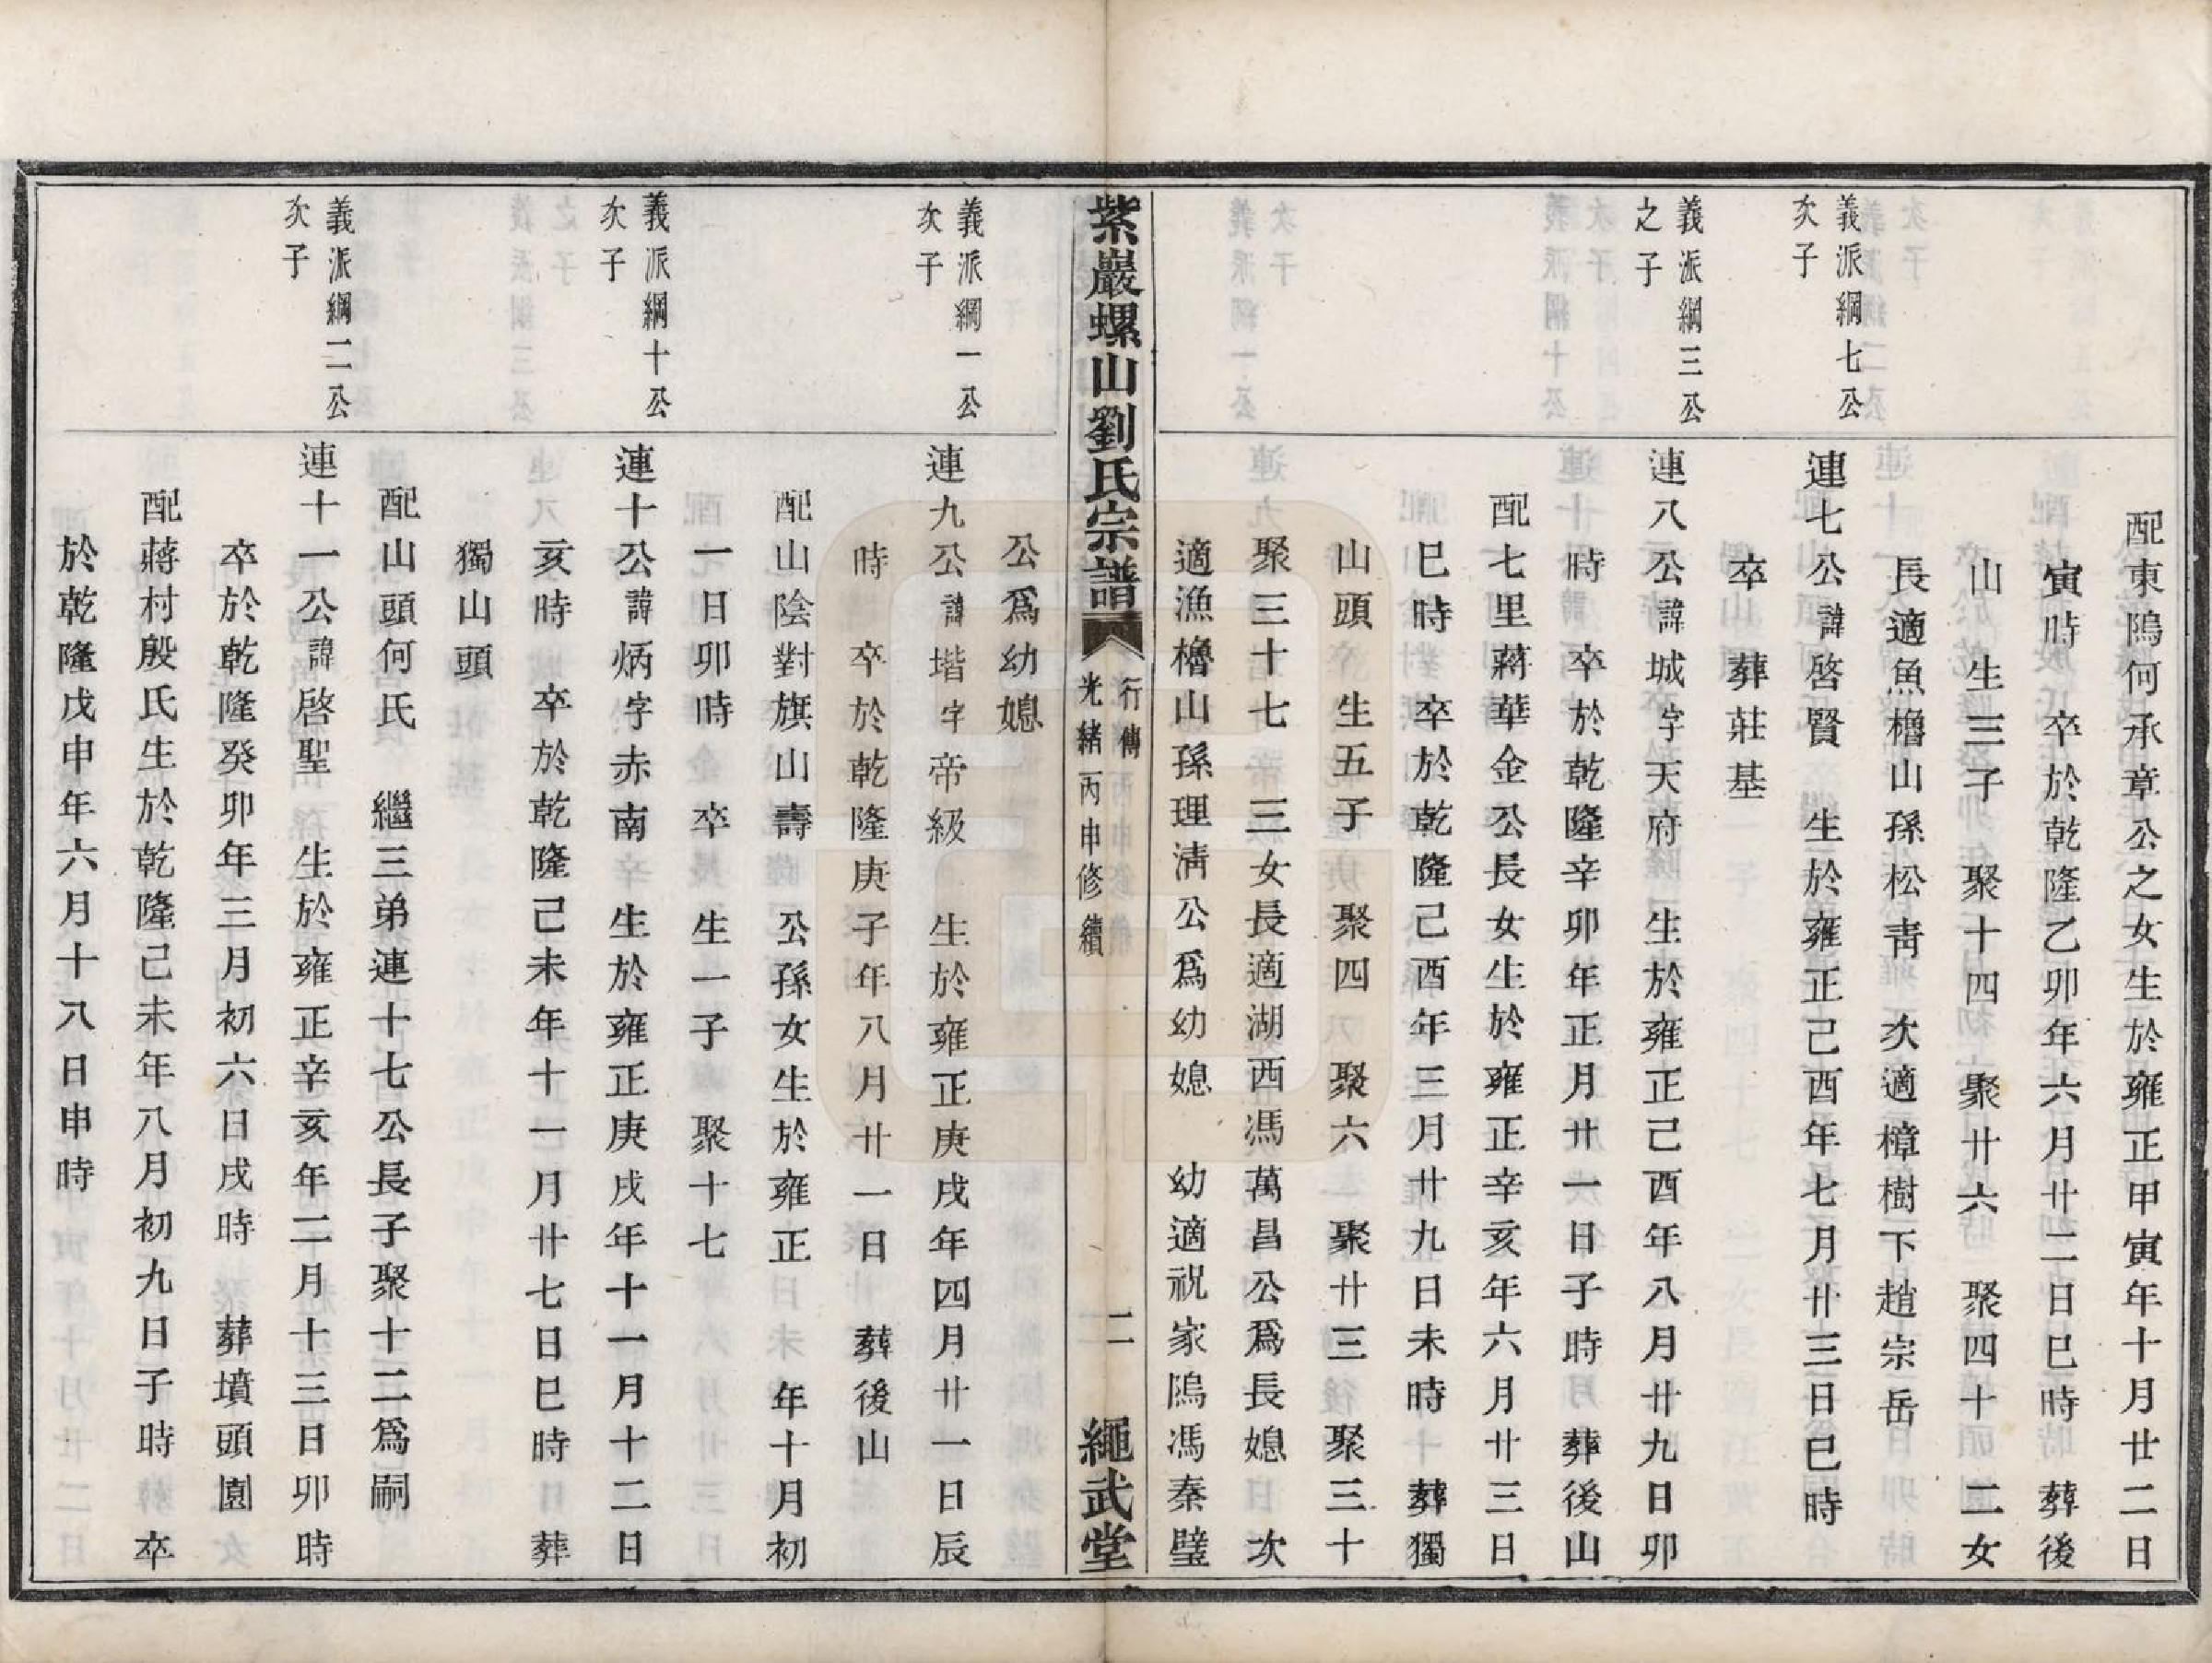 配東隝何承章公之女生於雍正甲寅年十月廿二日
寅時　卒於乾隆乙卯年六月廿二日巳時　葬後
山　生三子　聚十四　聚廿六　聚四十　二女
長適魚櫓山孫松靑　次適樟樹下趙宗岳
義派綱七公
次子
連七公諱啓賢　生於雍正己酉年七月廿三日巳時
卒　葬莊基
義派綱三公
之子
連八公諱城字天府　生於雍正己酉年八月廿九日卯
時　卒於乾隆辛卯年正月廿一日子時　葬後山
配七里蔣華金公長女生於雍正辛亥年六月廿三日
巳時　卒於乾隆己酉年三月廿九日未時　葬獨
山頭　生五子　聚四　聚六　聚廿三　聚三十
聚三十七　三女長適湖西馮萬昌公爲長媳　次
適漁櫓山孫理淸公爲幼媳　幼適祝家隝馮秦璧
紫巖螺山劉氏宗譜
行傳
光緒丙申修續
二
繩武堂
公爲幼媳
義派綱一公
次子
連九公諱堦字帝級　生於雍正庚戌年四月廿一日辰
時　卒於乾隆庚子年八月廿一日　葬後山
配山陰對旗山壽　公孫女生於雍正　年十月初
一日卯時　卒　生一子　聚十七
義派綱十公
次子
連十公諱炳字赤南　生於雍正庚戌年十一月十二日
亥時　卒於乾隆己未年十一月廿七日巳時　葬
獨山頭
配山頭何氏　繼三弟連十七公長子聚十二爲嗣
義派綱二公
次子
連十一公諱啓聖　生於雍正辛亥年二月十三日卯時
卒於乾隆癸卯年三月初六日戌時　葬墳頭園
配蔣村殷氏生於乾隆己未年八月初九日子時　卒
於乾隆戊申年六月十八日申時